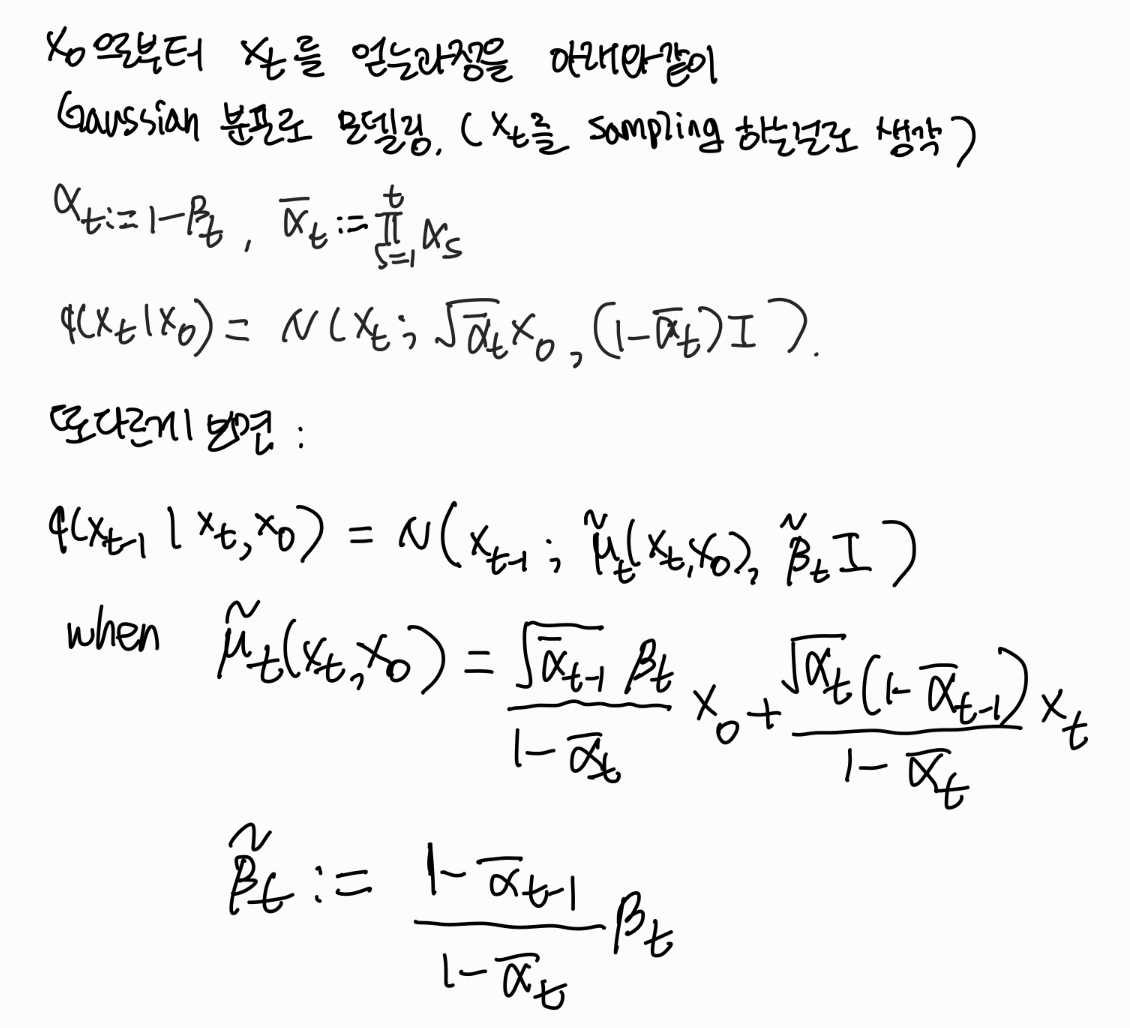 x₀으로부터 xₜ를 얻는과정을 아래와같이
Gaussian 분포로 모델링. (xₜ를 sampling 하는걸로 생각)
αₜ := 1-βₜ, ᾱₜ := ∏ₛ₌₁ᵗ αₛ
q(xₜ|x₀) = N(xₜ; √ᾱₜ x₀, (1-ᾱₜ)I).
또다르게 보면 :
q(xₜ₋₁ | xₜ, x₀) = N(xₜ₋₁ ; μ̃ₜ(xₜ,x₀), β̃ₜ I)
when μ̃ₜ(xₜ,x₀) = (√ᾱₜ₋₁ βₜ)/(1-ᾱₜ) x₀ + (√αₜ(1-ᾱₜ₋₁))/(1-ᾱₜ) xₜ
β̃ₜ := (1-ᾱₜ₋₁)/(1-ᾱₜ) βₜ